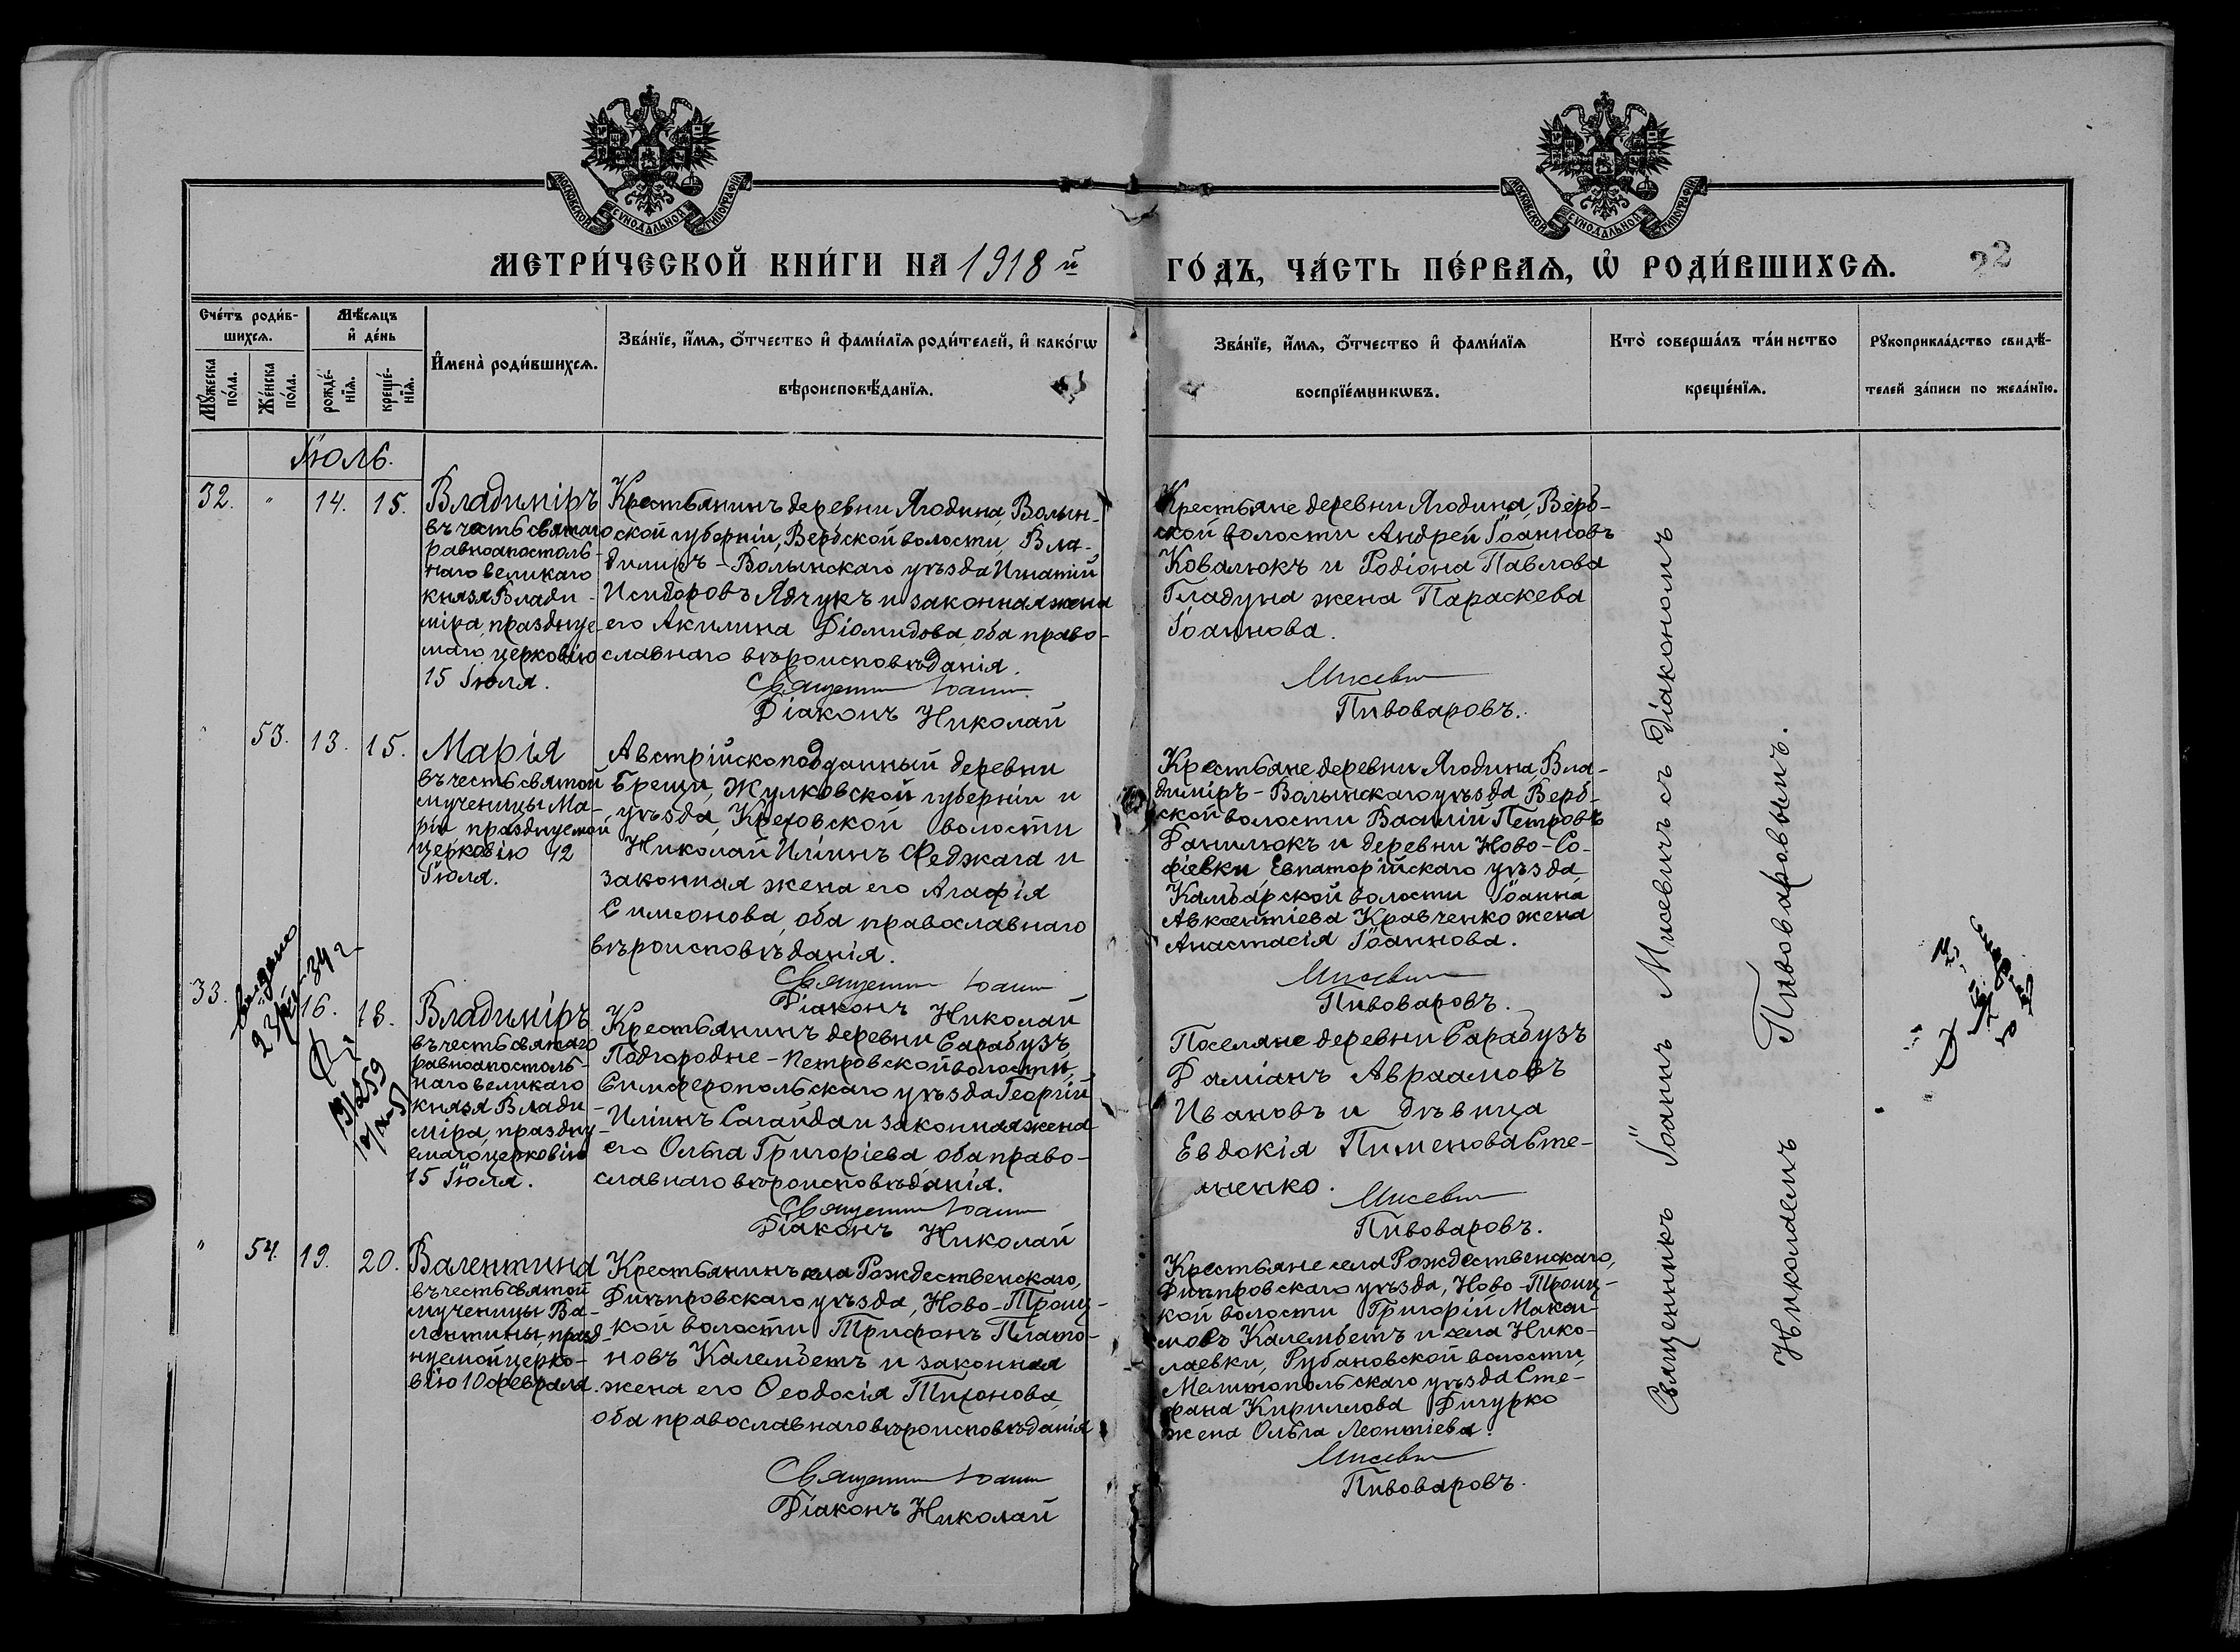 МОСКОВСКОЙ СѴНОДАЛЬНОЙ ТИПОГРАФІИ
МОСКОВСКОЙ СѴНОДАЛЬНОЙ ТИПОГРАФІИ
МЕТРИ́ЧЕСКОЙ КНИ́ГИ НА 1918 й
ГО́ДЪ, ЧА́СТЬ ПЕ́РВАѦ, Ѡ҆ РОДИ́ВШИХСѦ.
22
Сче́тъ роди́в-
шихсѧ.
Мѣ́сѧцъ
и҆ де́нь
Мꙋ́жеска
по́ла.
Же́нска
по́ла.
рожде́-
нїѧ.
креще́-
нїѧ.
И҆мена̀ роди́вшихсѧ.
Зва́нїе, и҆́мѧ, ѻ҆́тчество и҆ фами́лїѧ роди́телей, и҆ како́гѡ
вѣроисповѣ́данїѧ.
Зва́нїе, и҆́мѧ, ѻ҆́тчество и҆ фами́лїѧ
воспрїе́мникѡвъ.
Кто̀ соверша́лъ та́инство
креще́нїѧ.
Рꙋкоприкла́дство свидѣ́-
телей за́писи по жела́нїю.
Іюль.
32. " 14. 15.
Владиміръ
въ честь святаго
равноапостоль-
наго великаго
князя Влади-
міра, празднуе-
маго церковію
15 Іюля.
Крестьянинъ деревни Ягодина, Волын-
ской губерніи, Вербской волости, Вла-
диміръ-Волынскаго уѣзда Игнатій
Исидоровъ Ядчукъ и законная жена
его Акилина Діомидова, оба право-
славнаго вѣроисповѣданія.
Священникъ Іоаннъ
Діаконъ Николай
Крестьяне деревни Ягодина, Верб-
ской волости Андрей Іоанновъ
Ковалюкъ и Родіона Павлова
Гладуна жена Параскева
Іоаннова.
Мисевичъ
Пивоваровъ.
" 53. 13. 15.
Марія
въ честь святой
мученицы Ма-
ріи празднуемой
церковію 12
Іюля.
Австрійскоподданный деревни
Брещи, Жулковской губерніи и
уѣзда, Креховской волости
Николай Иліинъ Феджага и
законная жена его Агафія
Симеонова, оба православнаго
вѣроисповѣданія.
Священникъ Іоаннъ
Діаконъ Николай
Крестьяне деревни Ягодина, Вла-
диміръ-Волынскаго уѣзда Верб-
ской волости Василій Петровъ
Данилюкъ и деревни Ново-Со-
фіевки Евпаторійскаго уѣзда
Камбарской волости Іоанна
Авксентіева Кравченко жена
Анастасія Іоаннова.
Мисевичъ
Пивоваровъ.
33. " 16. 18.
выдано
Владиміръ
въ честь святаго
равноапостоль-
наго великаго
князя Влади-
міра, праздну-
емаго церковію
15 Іюля.
Крестьянинъ деревни Сарабузъ
Подгородне-Петровской волости,
Симферопольскаго уѣзда Георгій
Иліинъ Сагайда и законная жена
его Ольга Григоріева оба право-
славнаго вѣроисповѣданія.
Священникъ Іоаннъ
Діаконъ Николай
Поселяне деревни Сарабузъ
Даміанъ Авраамовъ
Ивановъ и дѣвица
Евдокія Пименова Сте-
паненко.
Мисевичъ
Пивоваровъ.
" 54. 19. 20.
Валентина
въ честь святой
мученицы Ва-
лентины, празд-
нуемой церко-
вію 10 февраля.
Крестьянинъ села Рождественскаго,
Днѣпровскаго уѣзда, Ново-Троиц-
кой волости Трифонъ Плато-
новъ Калембетъ и законная
жена его Ѳеодосія Тихонова,
оба православнаго вѣроисповѣданія
Священникъ Іоаннъ
Діаконъ Николай
Крестьяне села Рождественскаго,
Днѣпровскаго уѣзда, Ново-Троиц-
кой волости Григорій Макси-
мовъ Калембетъ и села Нико-
лаевки, Рубановской волости,
Мелитопольскаго уѣзда Сте-
фана Кириллова Дигурко
жена Ольга Леонтіева.
Мисевичъ
Пивоваровъ.
Священникъ Іоаннъ Мисевичъ съ Діакономъ
Николаемъ Пивоваровымъ.